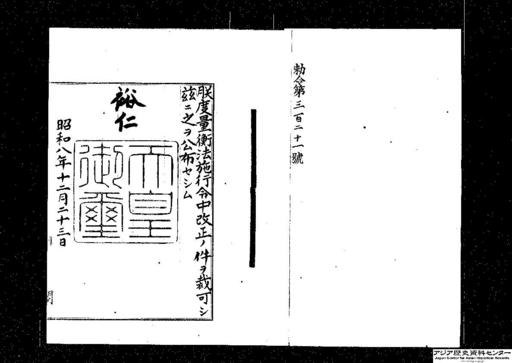 朕度量衡法施行令中改正ノ件ヲ裁可シ
茲ニ之ヲ公布セシム
裕仁
天皇
御璽
昭和八年十二月二十三日
勅令第三百二十一號
アジア歴史資料センター
Japan Center for Asian Historical Records